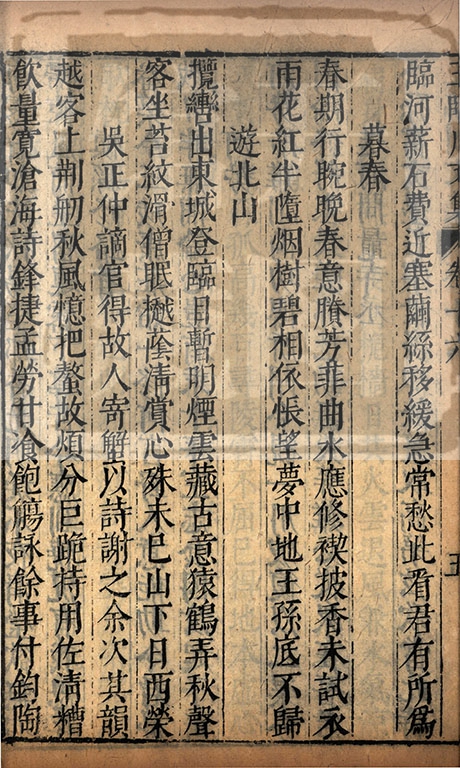 王臨川文集 卷十六 五
臨河薪石費近塞繭絲移緩急常愁此看君有所為
暮春
春期行晼晚春意賸芳菲曲水應修禊披香未試衣
雨花紅半墮烟樹碧相依悵望夢中地王孫底不歸
遊北山
攬轡出東城登臨目暫明煙雲藏古意猿鶴弄秋聲
客坐苔紋滑僧眠樾蔭清賞心殊未已山下日西榮
吳正仲謫官得故人寄蟹以詩謝之余次其韻
越客上荆舠秋風憶把螯故煩分巨跪持用佐清糟
飲量寬滄海詩鋒捷孟勞甘飡飽觴詠餘事付鈞陶